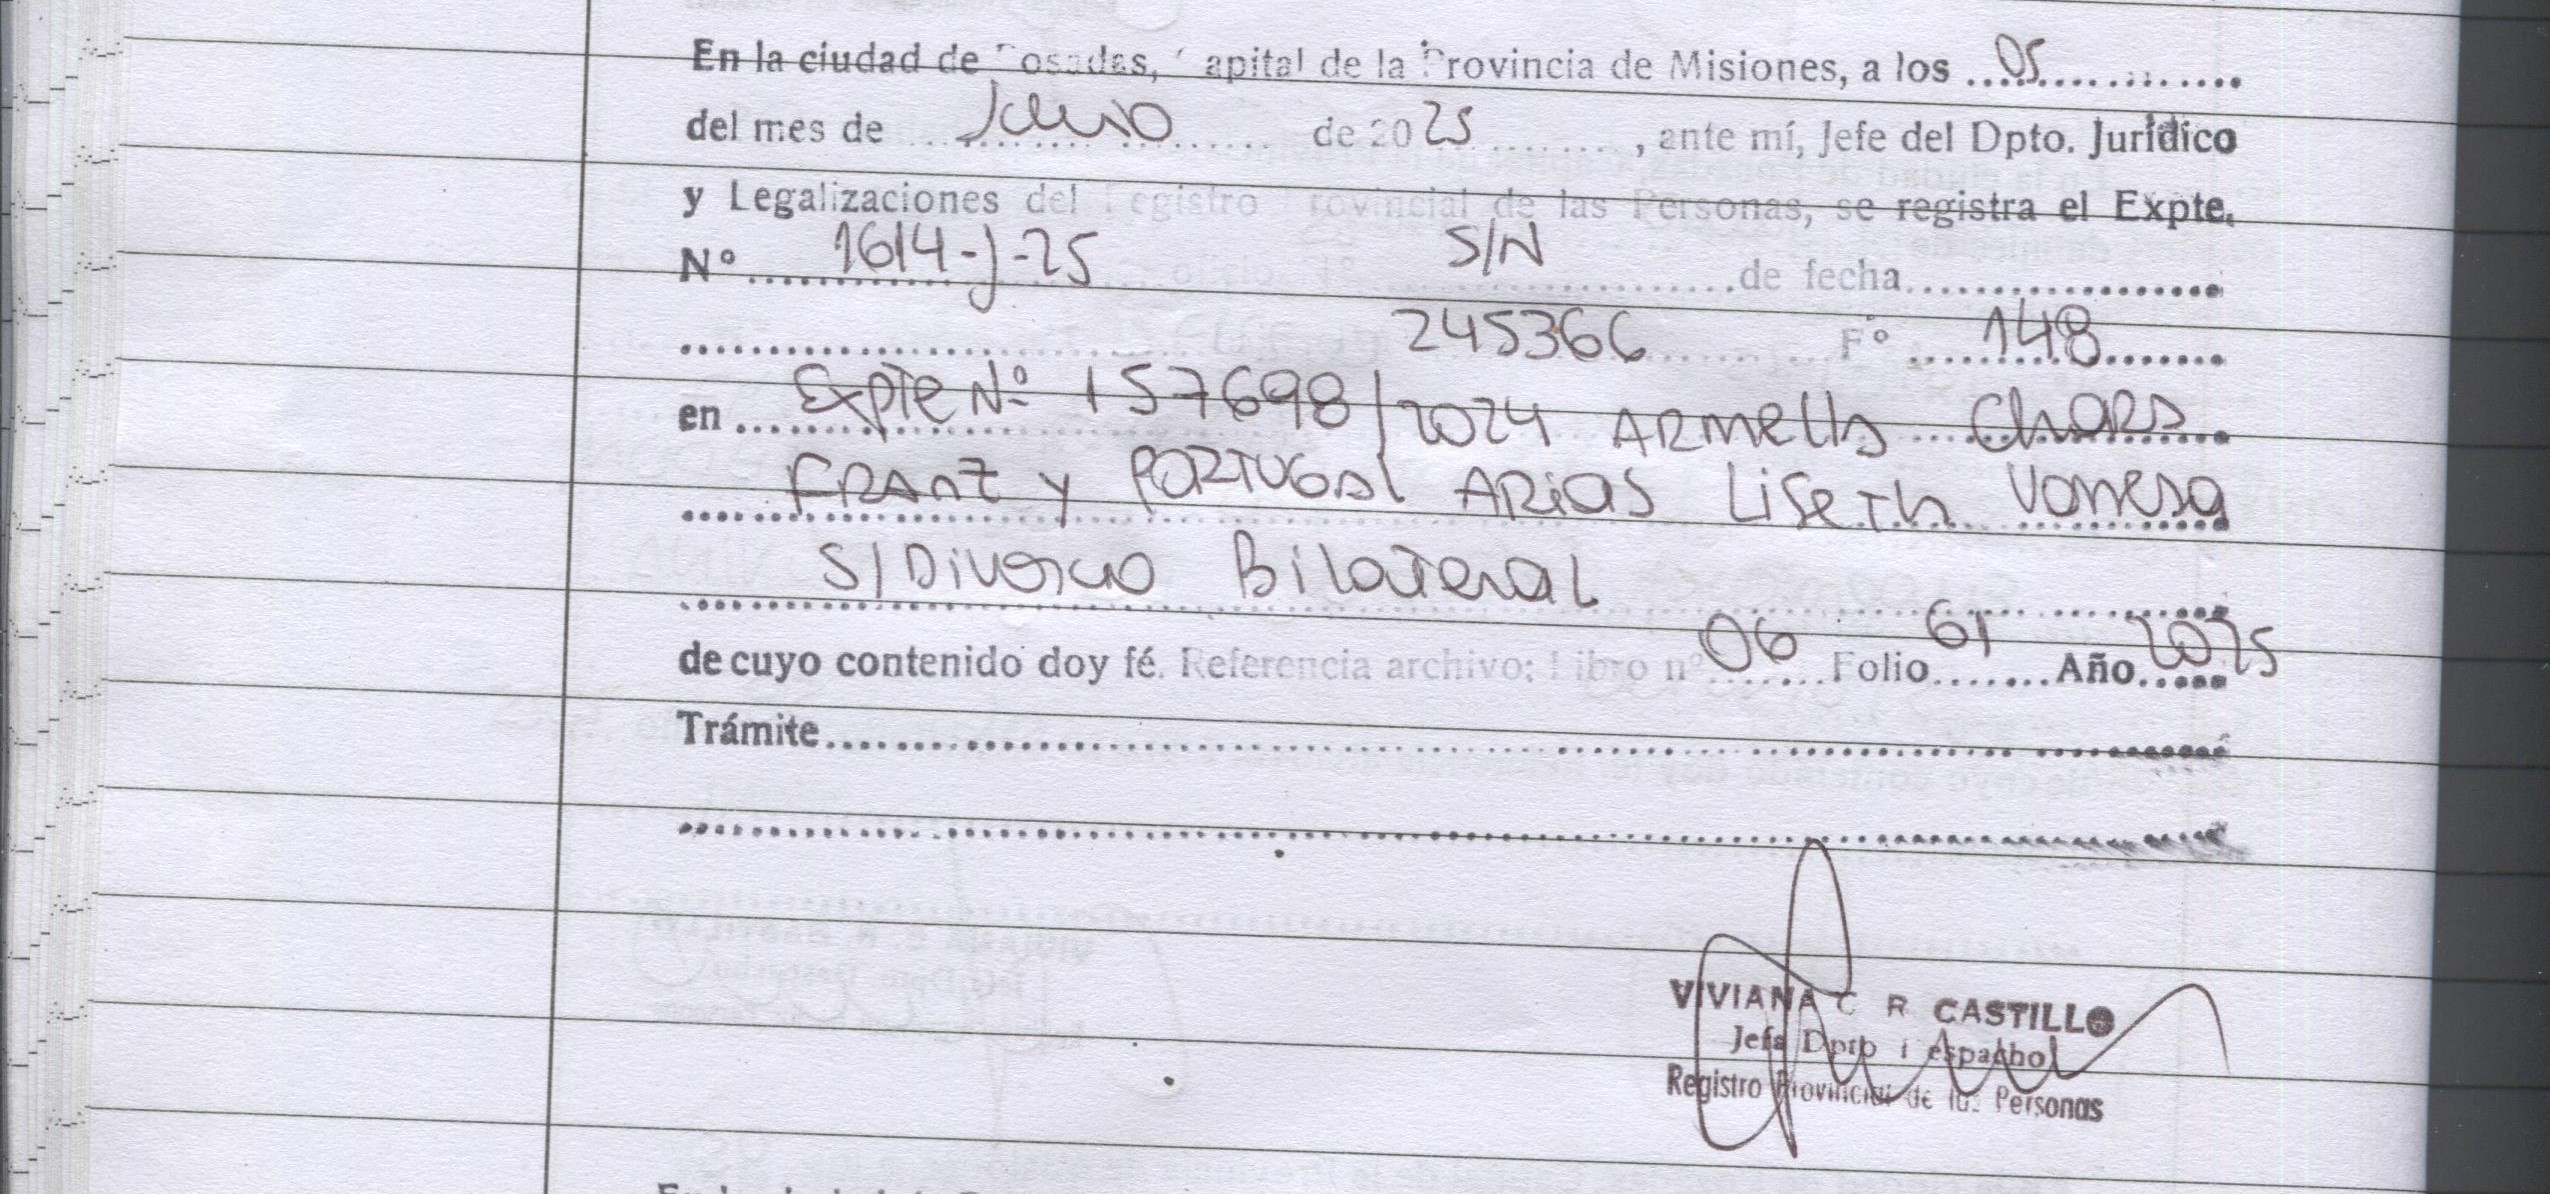 En la ciudad de Posadas, Capital de la Provincia de Misiones, a los 05
del mes de Junio de 2025, ante mí, Jefe del Dpto. Jurídico
y Legalizaciones del Registro Provincial de las Personas, se registra el Expte.
N° 1614-J-25 oficio N° S/N de fecha
245366 F° 148
en Expte Nº 157698/2024 Armella Chaes
Franz y Portugal Arias Liseth Vanesa
S/Divorcio Bilateral
de cuyo contenido doy fé. Referencia archivo: Libro nº 06 Folio 61 Año 2025
Trámite
VIVIANA C R CASTILLO
Jefa Dpto Despacho
Registro Provincial de las Personas